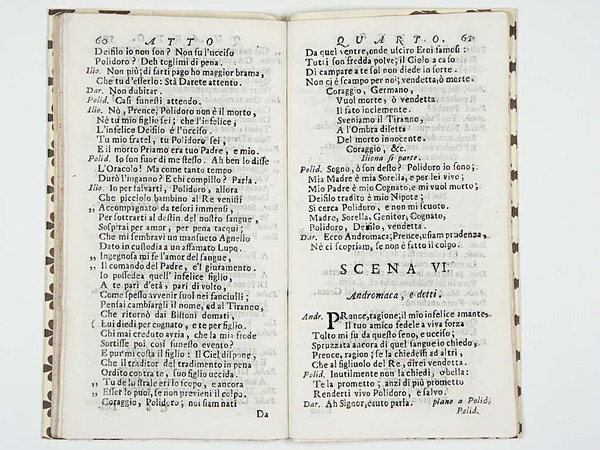 60 ATTO
Deifilo io non son? Non fu l'ucciso
Polidoro? Deh toglimi di pena.
Ilio. Non più; di farti pago ho maggior brama,
Che tu d'esserlo: Stà Darete attento.
Dar. Non dubitar.
Polid. Casi funesti attendo.
Ilio. Nò, Prence, Polidoro non è il morto,
Nè tu mio figlio sei; che l'infelice,
L'infelice Deifilo è l'ucciso.
Tu mio fratel, tu Polidoro sei,
E il morto Priamo era tuo Padre, e mio.
Polid. Io son fuor di me stesso. Ah ben lo disse
L'Oracolo! Ma come tanto tempo
Durò l'inganno? E chi compillo? Parla.
Ilio. Io per salvarti, Polidoro, allora
Che picciolo bambino al Re venisti
„ Accompagnato da tesori immensi,
Per sottrarti al destin del nostro sangue,
Sospirai per amor, per pena tacqui;
Che mi sembravi un mansueto Agnello
Dato in custodia a un affamato Lupo.
„ Ingegnosa mi fe l'amor del sangue,
„ Il comando del Padre, e'l giuramento.
Io possedea quell' infelice figlio,
A te pari d'età, pari di volto,
Come spesso avvenir suol nei fanciulli;
Pensai cambiargli il nome, ed al Tiranno,
Che ritornò dai Bistoni domati,
( Lui diedi per cognato, e te per figlio.
Chi mai creduto avria, che la mia frode
Sortisse poi così funesto evento?
E pur mi costa il figlio: Il Ciel dispone,
Che il traditor del tradimento in pena
Ordito contra te, suo figlio uccida.
„ Tu de lo strale eri lo scopo, e ancora
„ Esser lo puoi, se non previeni il colpo.
Coraggio, Polidoro; noi siam nati
Da
QUARTO. 61
Da quel ventre, onde usciro Eroi famosi:
Tutti son fredda polve; il Cielo a caso
Di campare a te sol non diede in sorte.
Non ci è scampo per noi; vendetta, ò morte.
Coraggio, Germano,
Vuol morte, ò vendetta
Il fato inclemente.
Sveniamo il Tiranno,
A l'Ombra diletta
Del morto innocente.
Coraggio, &c.
Iliona si parte.
Polid. Sogno, ò son desto? Polidoro io sono;
Mia Madre è mia Sorella, e per lei vivo;
Mio Padre è mio Cognato, e mi vuol morto;
Deifilo tradito è mio Nipote;
Si cerca Polidoro, e non mi scuoto.
Madre, Sorella, Genitor, Cognato,
Polidoro, Deifilo, vendetta.
Dar. Ecco Andromaca; Prence, usiam prudenza,
Nè ci scopriam, se non è fatto il colpo.
SCENA VI.
Andromaca, e detti.
Andr. PRence, ragione; il mio infelice amante,
Il tuo amico fedele a viva forza
Tolto mi fu da questo seno, e ucciso;
Spruzzata ancora di quel sangue io chiedo,
Prence, ragion; se la chiedessi ad altri,
Che al figliuolo del Re, direi vendetta.
Polid. Inutilmente non la chiedi, o bella:
Te la prometto; anzi di più prometto
Renderti vivo Polidoro, e salvo.
Dar. Ah Signor, cauto parla. piano a Polid.
Polid.